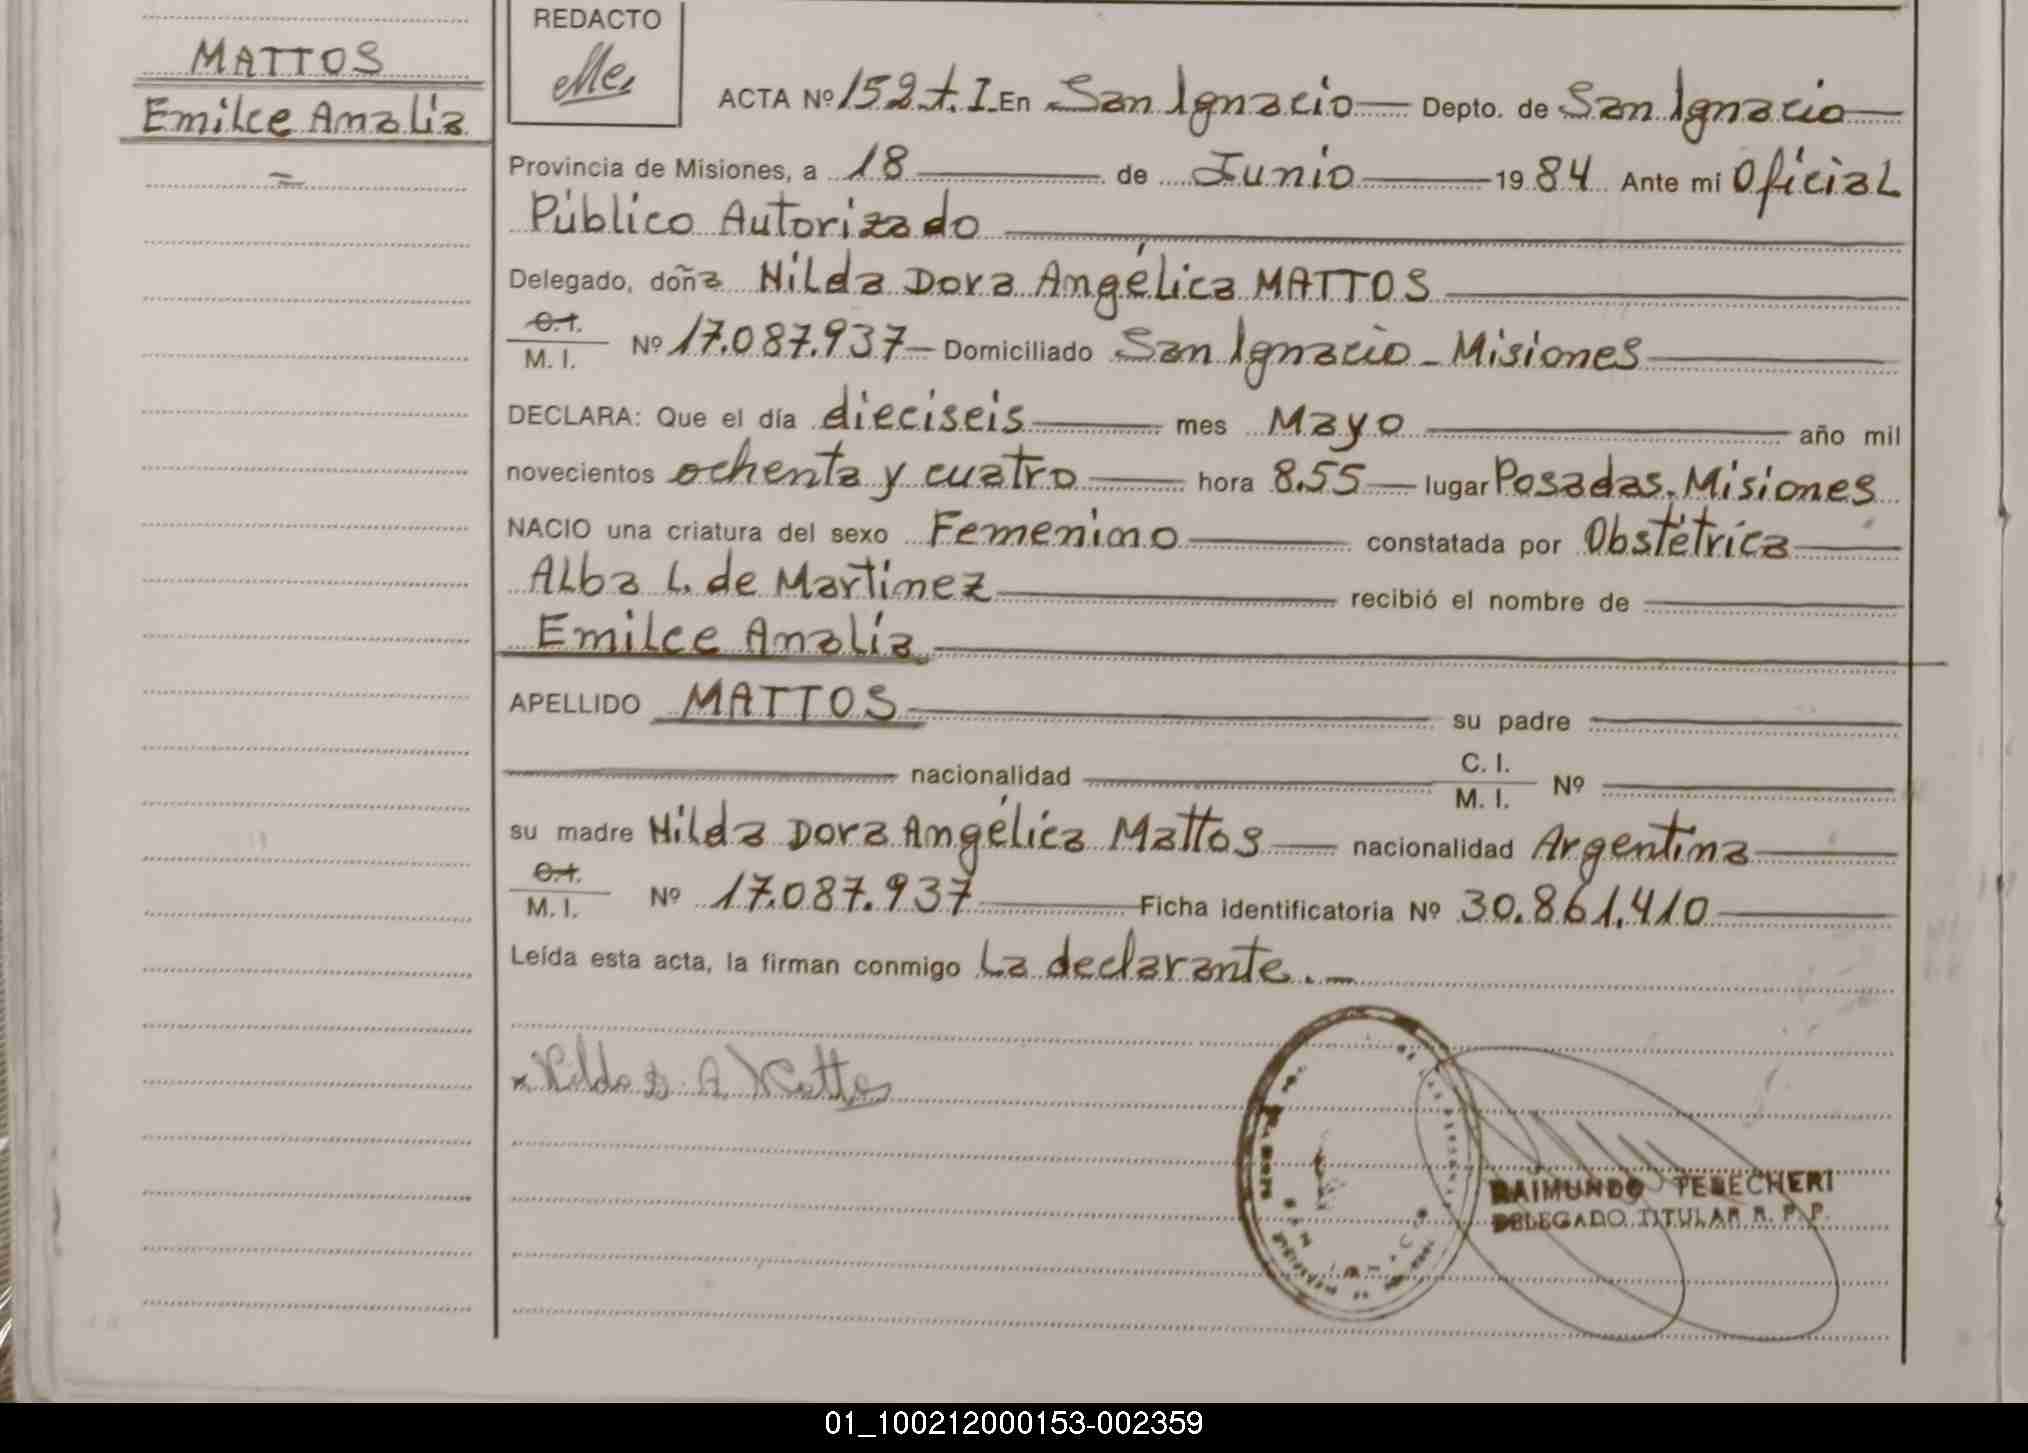 MATTOS
Emilce Analía
REDACTO
ACTA Nº 152 t. I. En San Ignacio Depto. de San Ignacio
Provincia de Misiones, a 18 de Junio 1984 Ante mi Oficial
Público Autorizado
Delegado, doña Hilda Dora Angélica MATTOS
C.I.
M. I. Nº 17.087.937 Domiciliado San Ignacio - Misiones
DECLARA: Que el día dieciseis mes Mayo año mil
novecientos ochenta y cuatro hora 8.55 lugar Posadas. Misiones
NACIO una criatura del sexo Femenino constatada por Obstétrica
Alba L. de Martinez recibió el nombre de
Emilce Analía
APELLIDO MATTOS su padre
nacionalidad C. I.
M. I. Nº
su madre Hilda Dora Angélica Mattos nacionalidad Argentina
C.I.
M. I. Nº 17.087.937 Ficha identificatoria Nº 30.861.410
Leída esta acta, la firman conmigo La declarante.
x Hilda D. A. Mattos
RAIMUNDO
DELEGADO TITULAR R. P. P.
01_100212000153-002359